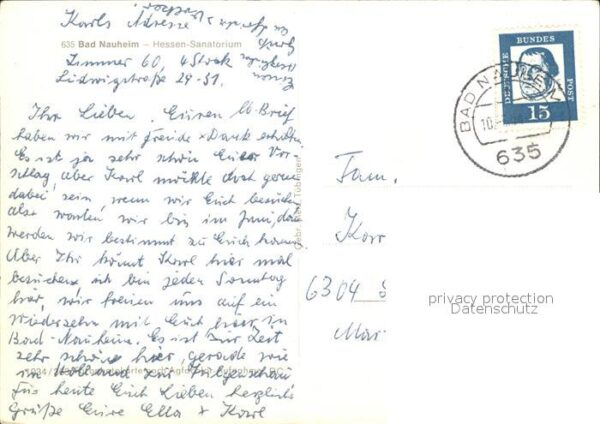 Karls Adresse
635 Bad Nauheim – Hessen-Sanatorium
Zimmer 60, 4 Stock
Ludwigstraße 24-31.
Ihr Lieben. Euren lb. Brief
haben wir mit Freude + Dank erhalten.
Es ist ja sehr schön Euer Vor-
schlag, aber Karl möchte doch gerne
dabei sein, wenn wir Euch besuchen
also warten wir bis im Juni, da
werden wir bestimmt zu Euch kommen
Aber Ihr könnt Karl hier mal
besuchen ich bin jeden Sonntag
hier, wir freuen uns auf ein
Wiedersehn mit Euch hier in
Bad-Nauheim. Es ist zur Zeit
sehr schön hier, gerade wie
in Holland zur
Für heute Euch Lieben herzliche
Grüße Eure Ella + Karl
DEUTSCHE BUNDESPOST
15
BAD NAUHEIM
10.
635
Gebr. Metz Tübingen
Fam.
Karl
6304
Mar
privacy protection
Datenschutz